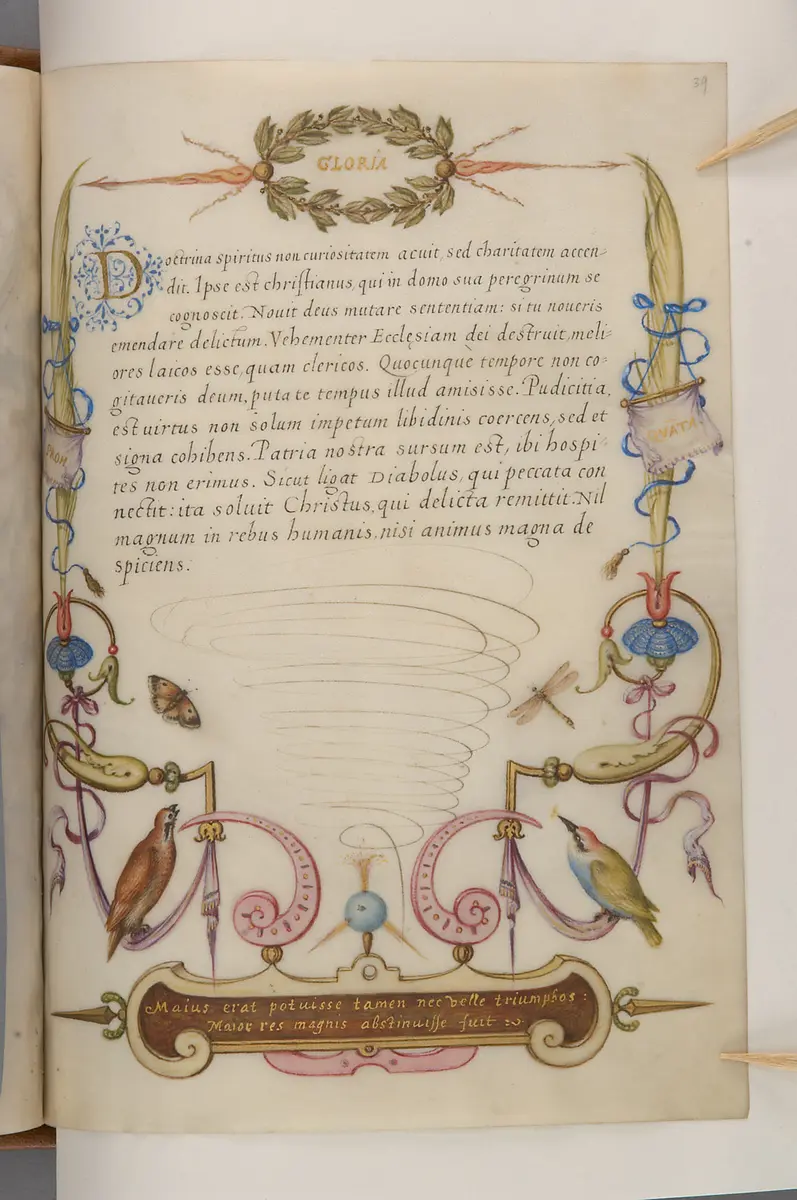 39
GLORIA
Doctrina spiritus non curiositatem acuit, sed charitatem accen-
dit. Ipse est christianus, qui in domo sua peregrinum se
cognoscit. Nouit deus mutare sententiam: si tu noueris
emendare delictum. Vehementer Ecclęsiam dei destruit, meli-
ores laicos esse, quam clericos. Quocunque tempore non co-
gitaueris deum, puta te tempus illud amisisse. Pudicitia,
est uirtus non solum impetum libidinis coercens, sed et
signa cohibens. Patria nostra sursum est, ibi hospi-
tes non erimus. Sicut ligat Diabolus, qui peccata con
nectit: ita soluit Christus, qui delicta remittit. Nil
magnum in rebus humanis, nisi animus magna de
spiciens.
Maius erat potuisse tamen nec velle triumphos:
Maior res magnis abstinuisse fuit